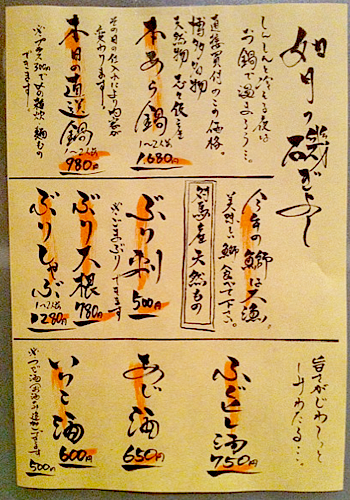 如月の磯ぎよし
しんしんと冷える夜は
お鍋で温まろう…。
直接買付のこの価格。
博多名物
天然物
本あら鍋
1〜2人前
1,680円
その日の仕入れにより内容が
変わります
本日の直送鍋
1〜2人前
980円
できます
今年の鰤は大漁。
美味しい鰤食べて下さい。
対馬産天然もの
ぶり刺
500円
※ごまぶりできます
ぶり大根
780円
ぶりしゃぶ
1〜2人前
1280円
旨さがじわ〜っと
しみわたる…。
ふぐひれ酒
750円
あじ酒
650円
いりこ酒
600円
※つぎ酒(お酒のみ追加)できます
500円